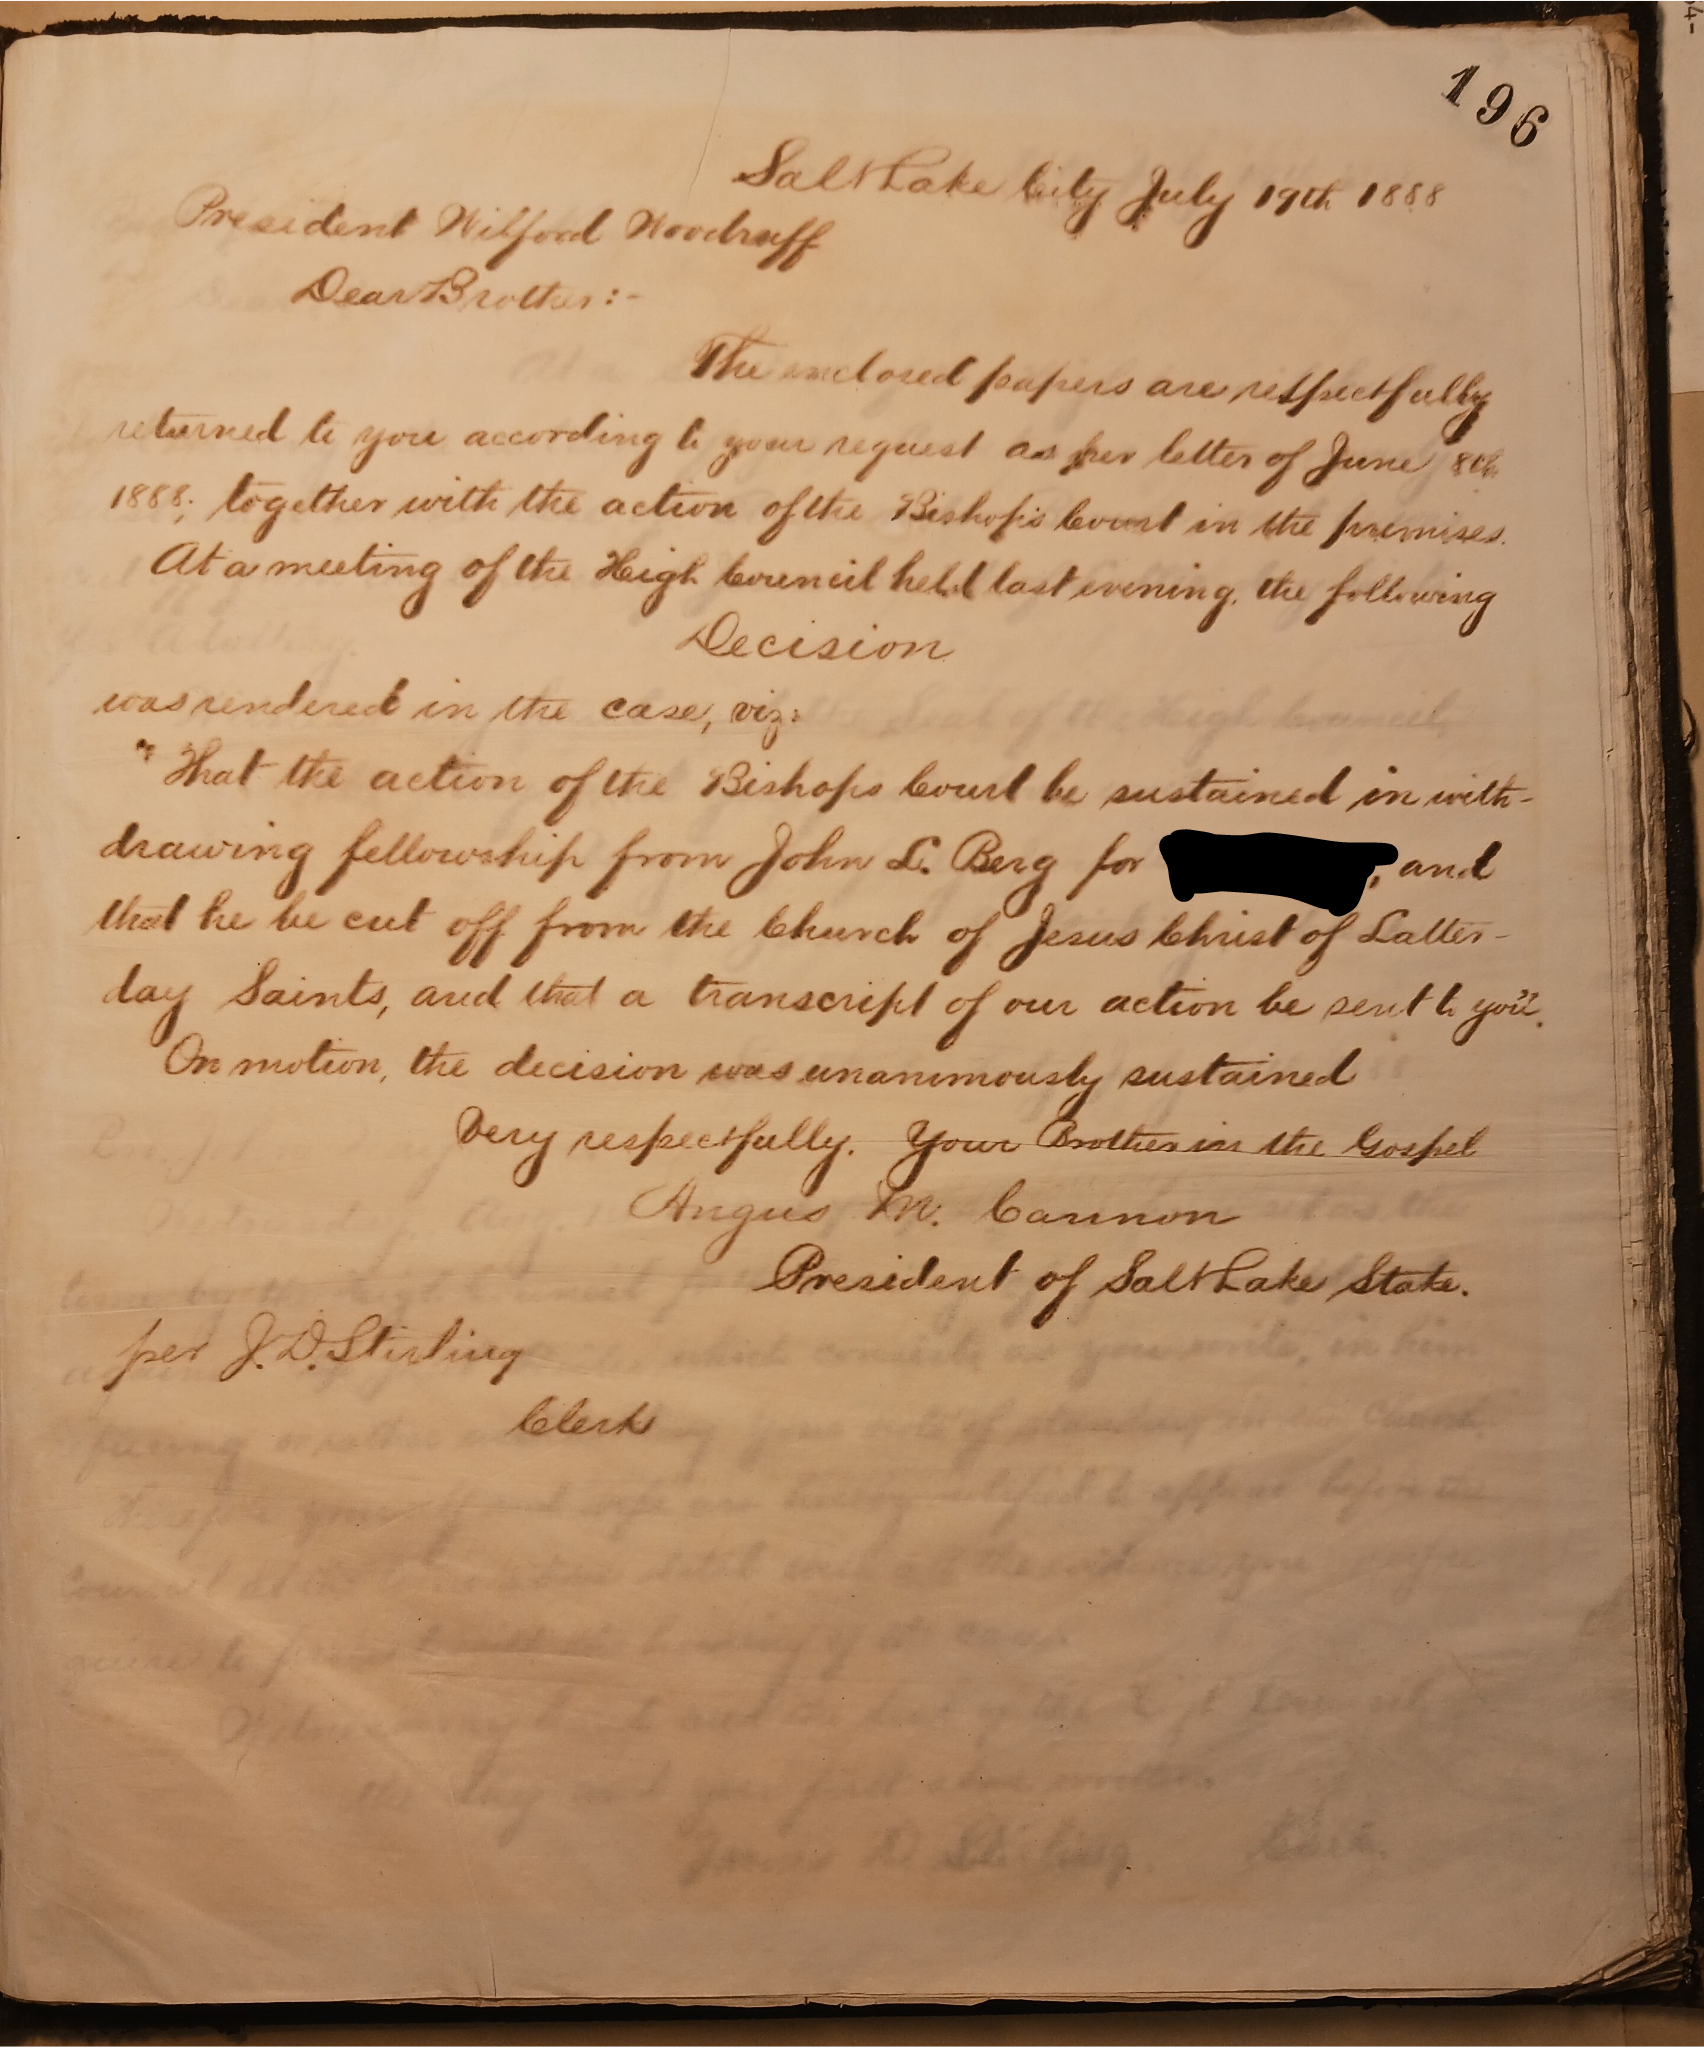 196
Salt Lake City July 19th 1888
President Wilford Woodruff
Dear Brother:-
The enclosed papers are respectfully
returned to you according to your request as per letter of June 8th
1888; together with the action of the Bishop's Court in the premises.
At a meeting of the High Council held last evening, the following
Decision
was rendered in the case, viz:
"That the action of the Bishops Court be sustained in with-
drawing fellowship from John L. Berg for , and
that he be cut off from the Church of Jesus Christ of Latter-
day Saints, and that a transcript of our action be sent to you".
On motion, the decision was unanimously sustained
Very respectfully. Your Brother in the Gospel
Angus M. Cannon
President of Salt Lake Stake.
per J. D. Stirling
Clerk